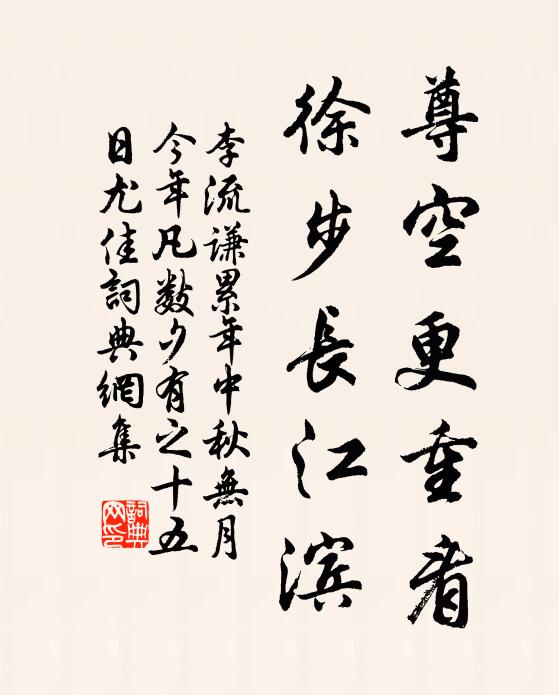 尊空更重肴
徐步長江濱
李流謙累年中秋無月
今年凡數夕有之十五
日尤佳詞典網集
詞典网印